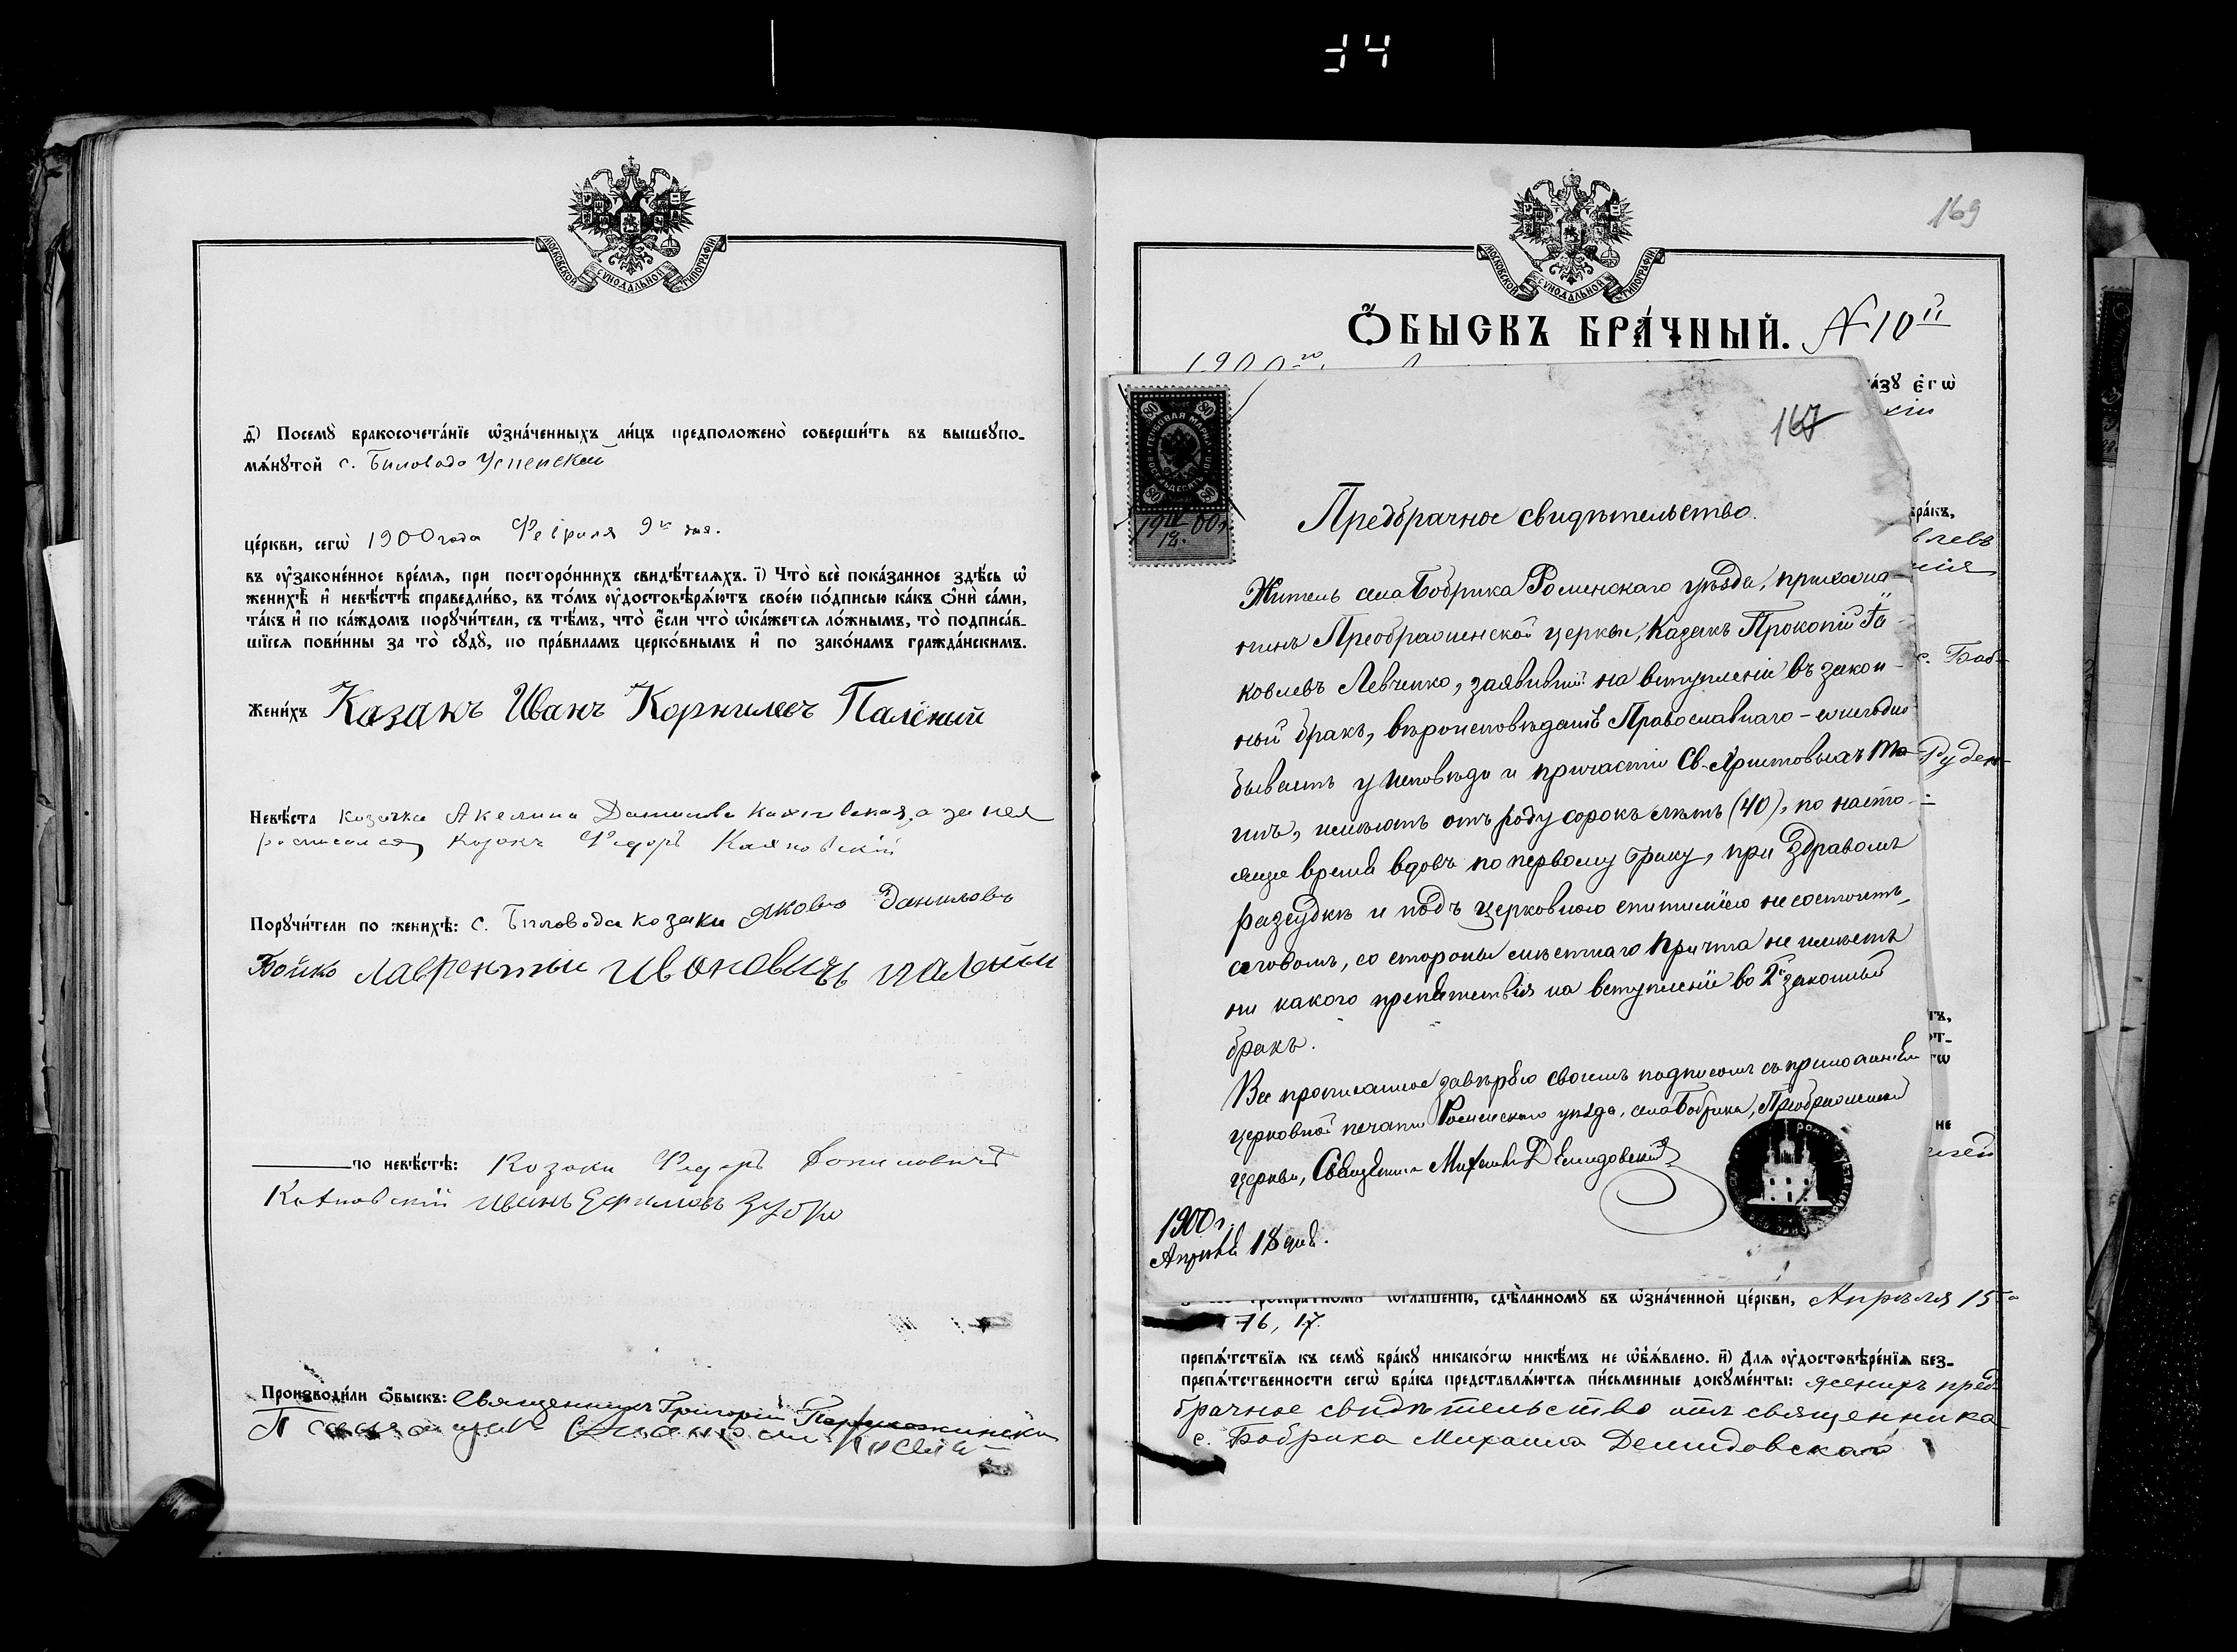 34
МОСКОВСКОЙ СѴНОДАЛЬНОЙ ТИПОГРАФІИ
д҃) Посемꙋ̀ бракосочета́нїе ѡ҆зна́ченныхъ ли́цъ предположено̀ соверши́ть въ вышеꙋпо-
мѧ́нꙋтой с. Биловода Успенской
це́ркви, сегѡ̀ 1900 года Февраля 9го дня.
въ ᲂу҆зако́ненное вре́мѧ, при посторо́ннихъ свидѣ́телѧхъ. і҃) Что̀ всѐ пока́занное здѣ́сь ѡ҆
женихѣ̀ и҆ невѣ́стѣ справедли́во, въ то́мъ ᲂу҆достовѣрѧ́ютъ свое́ю по́дписью ка́къ ѻ҆нѝ са́ми,
та́къ и҆ по ка́ждомъ порꙋчи́тели, съ тѣ́мъ, что̀ є҆́сли что̀ ѡ҆ка́жетсѧ ло́жнымъ, то̀ подписа́в-
шїесѧ пови́нны за то̀ сꙋдꙋ̀, по пра́виламъ церко́внымъ и҆ по зако́намъ гражда́нскимъ.
Жени́хъ Казакъ Иванъ Корнилиевъ Паленый
Невѣ́ста козачка Акелина Данилова, а за нея
росписался козакъ Федоръ
Порꙋчи́тели по женихѣ̀: с. Биловода козаки Яковъ Даниловъ
Бойко Лаврентий Ивоновичъ палыйи
по невѣ́стѣ: Козаки Федоръ Данилович
Иванъ Ефимовъ Зубко
Производи́ли ѻ҆́быскъ: Священникъ Григорій
169
МОСКОВСКОЙ СѴНОДАЛЬНОЙ ТИПОГРАФІИ
Ѻ҆́БЫСКЪ БРА́ЧНЫЙ. № 10й
1900го
ка́зꙋ є҆гѡ̀
хіи
167
ГЕРБОВАЯ МАРКА
ВОСЕМЬДЕСЯТЪ
80
19 IV 00 г.
18.
Предбрачное свидѣтельство.
Житель села Бобрика Роменскаго уѣзда, прихожа-
нинъ Преображенской церкви, Казакъ Прокопій Іа-
ковлевъ Левченко, заявившій на вступленіе въ закон-
ный бракъ, вѣроисповѣданія Православнаго – ежегодно
бываетъ у исповѣди и причастія Св. Христовыхъ Та-
инъ, имѣетъ отъ роду сорокъ лѣтъ (40), по насто-
ящее время вдовъ по первому браку, при здравомъ
разсудкѣ и подъ церковною епитиміею не состоитъ,
а со стороны мѣстнаго причта не имѣетъ
ни какого препятствія на вступленіе во 2й законный
бракъ.
Все прописанное завѣряю своимъ подписомъ съ приложеніемъ
церковной печати Роменскаго уѣзда, села Бобрика, Преображенской
церкви, Священникъ Михаилъ Демидовскій
1900 г.
Апрѣля 18 дня.
бра́къ,
с. Боб-
Руден-
не
троекра́тномꙋ ѡ҆глаше́нїю, сдѣ́ланномꙋ въ ѡ҆зна́ченной це́ркви, Апрѣля 15го
16, 17.
препѧ́тствїѧ къ семꙋ̀ бра́кꙋ никако́гѡ никѣ́мъ не ѡ҆б̾ѧ́влено. и҃) Длѧ ᲂу҆достовѣре́нїѧ без-
препѧ́тственности сегѡ̀ бра́ка представлѧ́ютсѧ пи́сьменные докꙋме́нты: женихъ пред-
брачное свидѣтельство отъ священника
с. Бобрика Михаила Демидовскаго